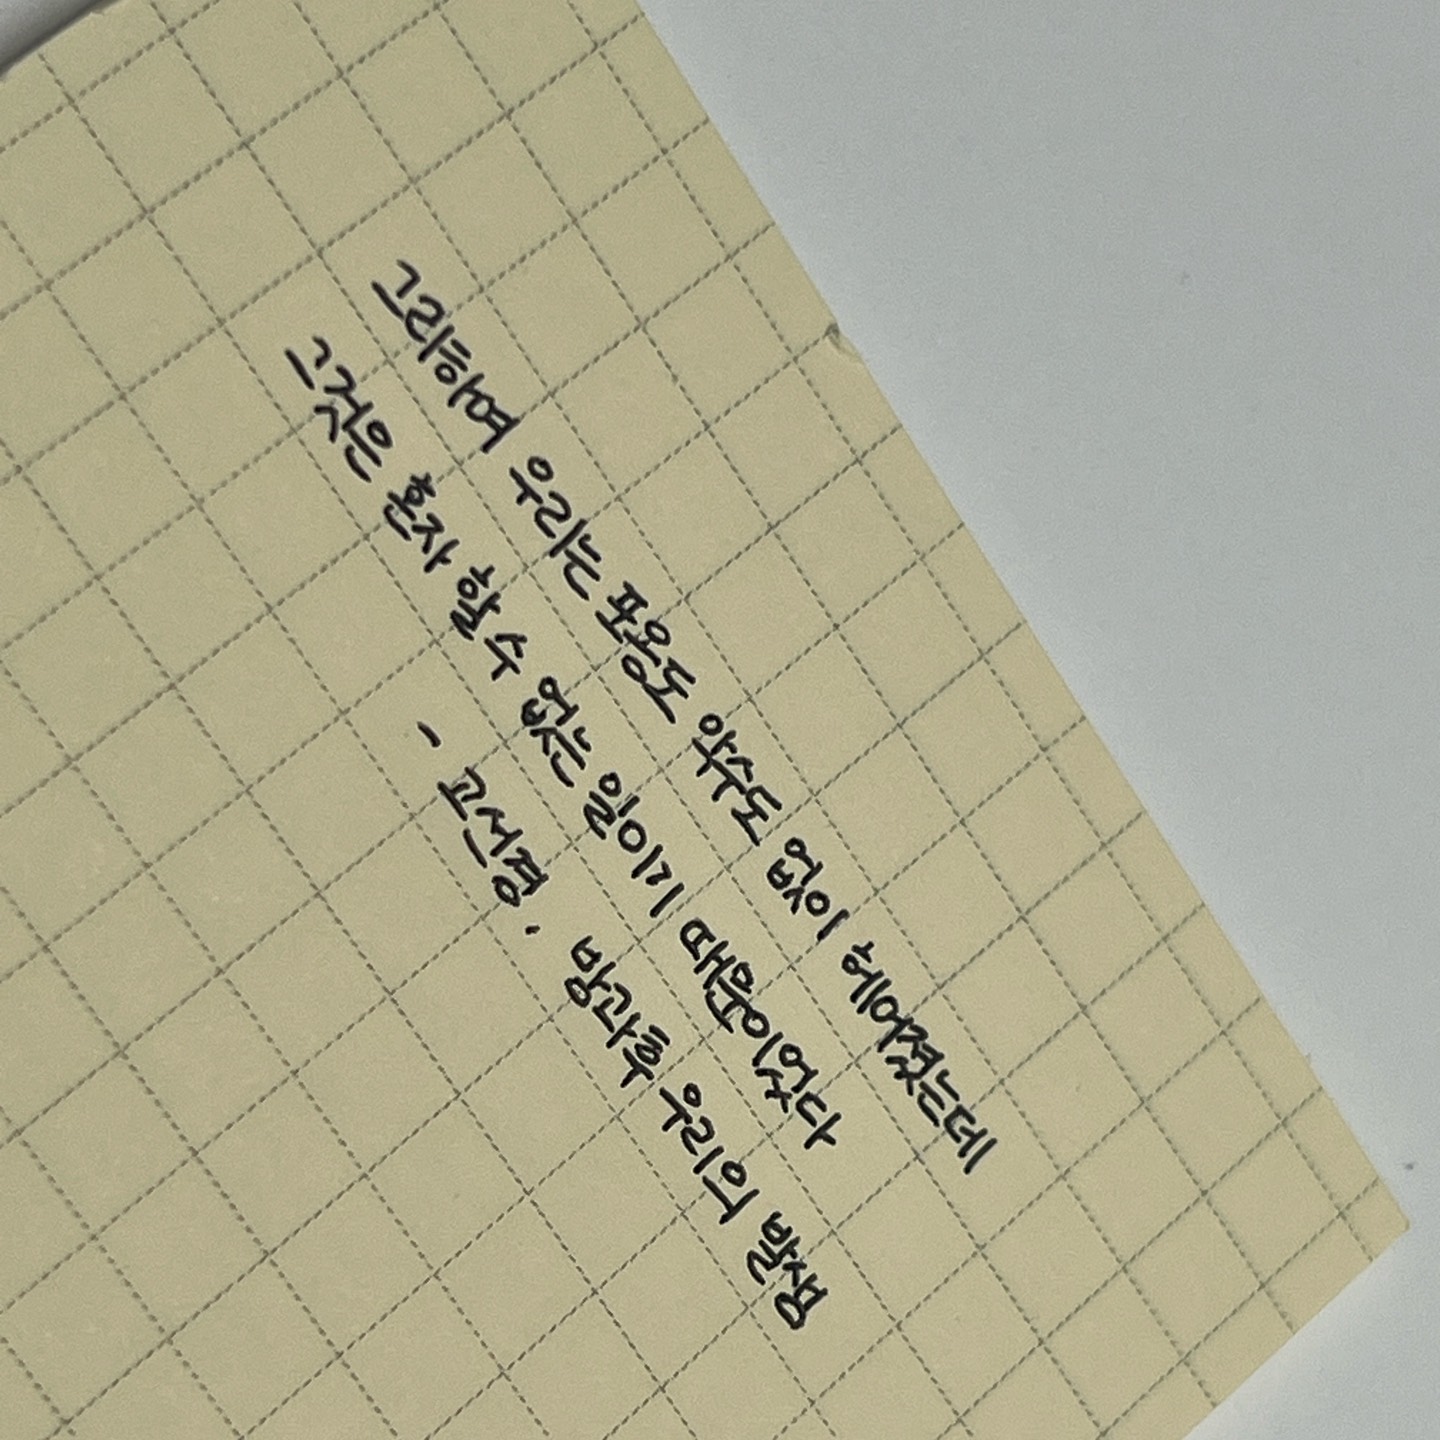 그리하여 우리는 포옹도 악수도 없이 헤어졌는데
그것은 혼자 할 수 없는 일이기 때문이었다
- 고선경, 방과후 우리의 발생